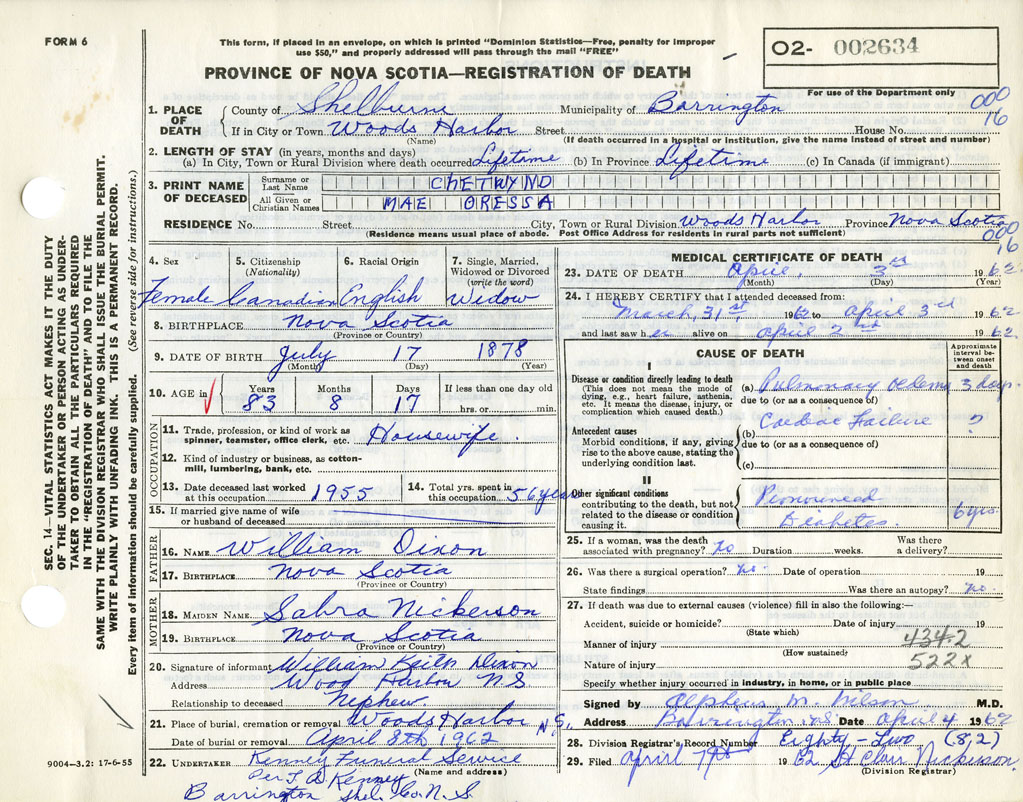 FORM 6
This form, if placed in an envelope, on which is printed "Dominion Statistics—Free, penalty for improper
use $50," and properly addressed will pass through the mail "FREE"
O2- 002634
PROVINCE OF NOVA SCOTIA—REGISTRATION OF DEATH
For use of the Department only
000
16
SEC. 14—VITAL STATISTICS ACT MAKES IT THE DUTY
OF THE UNDERTAKER OR PERSON ACTING AS UNDER-
TAKER TO OBTAIN ALL THE PARTICULARS REQUIRED
IN THE "REGISTRATION OF DEATH" AND TO FILE THE
SAME WITH THE DIVISION REGISTRAR WHO SHALL ISSUE THE BURIAL PERMIT.
WRITE PLAINLY WITH UNFADING INK. THIS IS A PERMANENT RECORD.
Every item of information should be carefully supplied. (See reverse side for instructions.)
1. PLACE OF DEATH County of Shelburne Municipality of Barrington
If in City or Town Woods Harbor Street House No.
(Name) (If death occurred in a hospital or institution, give the name instead of street and number)
2. LENGTH OF STAY (in years, months and days)
(a) In City, Town or Rural Division where death occurred Lifetime (b) In Province Lifetime (c) In Canada (if immigrant)
3. PRINT NAME OF DECEASED Surname or Last Name CHETWYND
All Given or Christian Names MAE ORESSA
RESIDENCE No. Street City, Town or Rural Division Woods Harbor Province Nova Scotia
(Residence means usual place of abode. Post Office Address for residents in rural parts not sufficient)
000
16
4. Sex 5. Citizenship (Nationality) 6. Racial Origin 7. Single, Married, Widowed or Divorced (write the word)
Female Canadian English Widow
8. BIRTHPLACE Nova Scotia
(Province or Country)
9. DATE OF BIRTH July 17 1878
(Month) (Day) (Year)
10. AGE in Years Months Days If less than one day old
83 8 17 hrs. or min.
OCCUPATION
11. Trade, profession, or kind of work as
spinner, teamster, office clerk, etc. Housewife.
12. Kind of industry or business, as cotton-
mill, lumbering, bank, etc.
13. Date deceased last worked
at this occupation 1955
14. Total yrs. spent in
this occupation 56 years
15. If married give name of wife
or husband of deceased
FATHER
16. NAME William Dixon
17. BIRTHPLACE Nova Scotia
(Province or Country)
MOTHER
18. MAIDEN NAME Sabra Nickerson
19. BIRTHPLACE Nova Scotia
(Province or Country)
20. Signature of informant William Keith Dixon
Address Wood Harbor N S
Relationship to deceased Nephew.
21. Place of burial, cremation or removal Woods Harbor N.S.
Date of burial or removal April 8th 1962
22. UNDERTAKER Kenney Funeral Service
(Name and address)
Per Kenney
Barrington Shel. Co. N. S.
9004—3.2: 17-6-55
MEDICAL CERTIFICATE OF DEATH
23. DATE OF DEATH April, 3rd 1962
(Month) (Day) (Year)
24. I HEREBY CERTIFY that I attended deceased from:
March, 31st 1962 to April 3rd 1962
and last saw her alive on April 2nd 1962
CAUSE OF DEATH
Approximate
interval be-
tween onset
and death
I
Disease or condition directly leading to death
(This does not mean the mode of
dying, e.g., heart failure, asthenia,
etc. It means the disease, injury, or
complication which caused death.)
(a) Pulmonary Oedema 3 days.
due to (or as a consequence of)
Antecedent causes
Morbid conditions, if any, giving
rise to the above cause, stating the
underlying condition last.
(b) Cardiac Failure ?
due to (or as a consequence of)
(c)
II
Other significant conditions
contributing to the death, but not
related to the disease or condition
causing it.
Pronounced
Diabetes. 6 yrs.
25. If a woman, was the death
associated with pregnancy? no Duration weeks. Was there
a delivery?
26. Was there a surgical operation? no. Date of operation 19
State findings Was there an autopsy? no.
27. If death was due to external causes (violence) fill in also the following:—
Accident, suicide or homicide? Date of injury 19
(State which)
Manner of injury 434.2
(How sustained)
Nature of injury 522x
Specify whether injury occurred in industry, in home, or in public place
Signed by Alpheus M. Wilson M.D.
Address Barrington N.S. Date April 4 1962
28. Division Registrar's Record Number Eighty-Two (82)
29. Filed April 1962 St Clair Nickerson.
(Division Registrar)